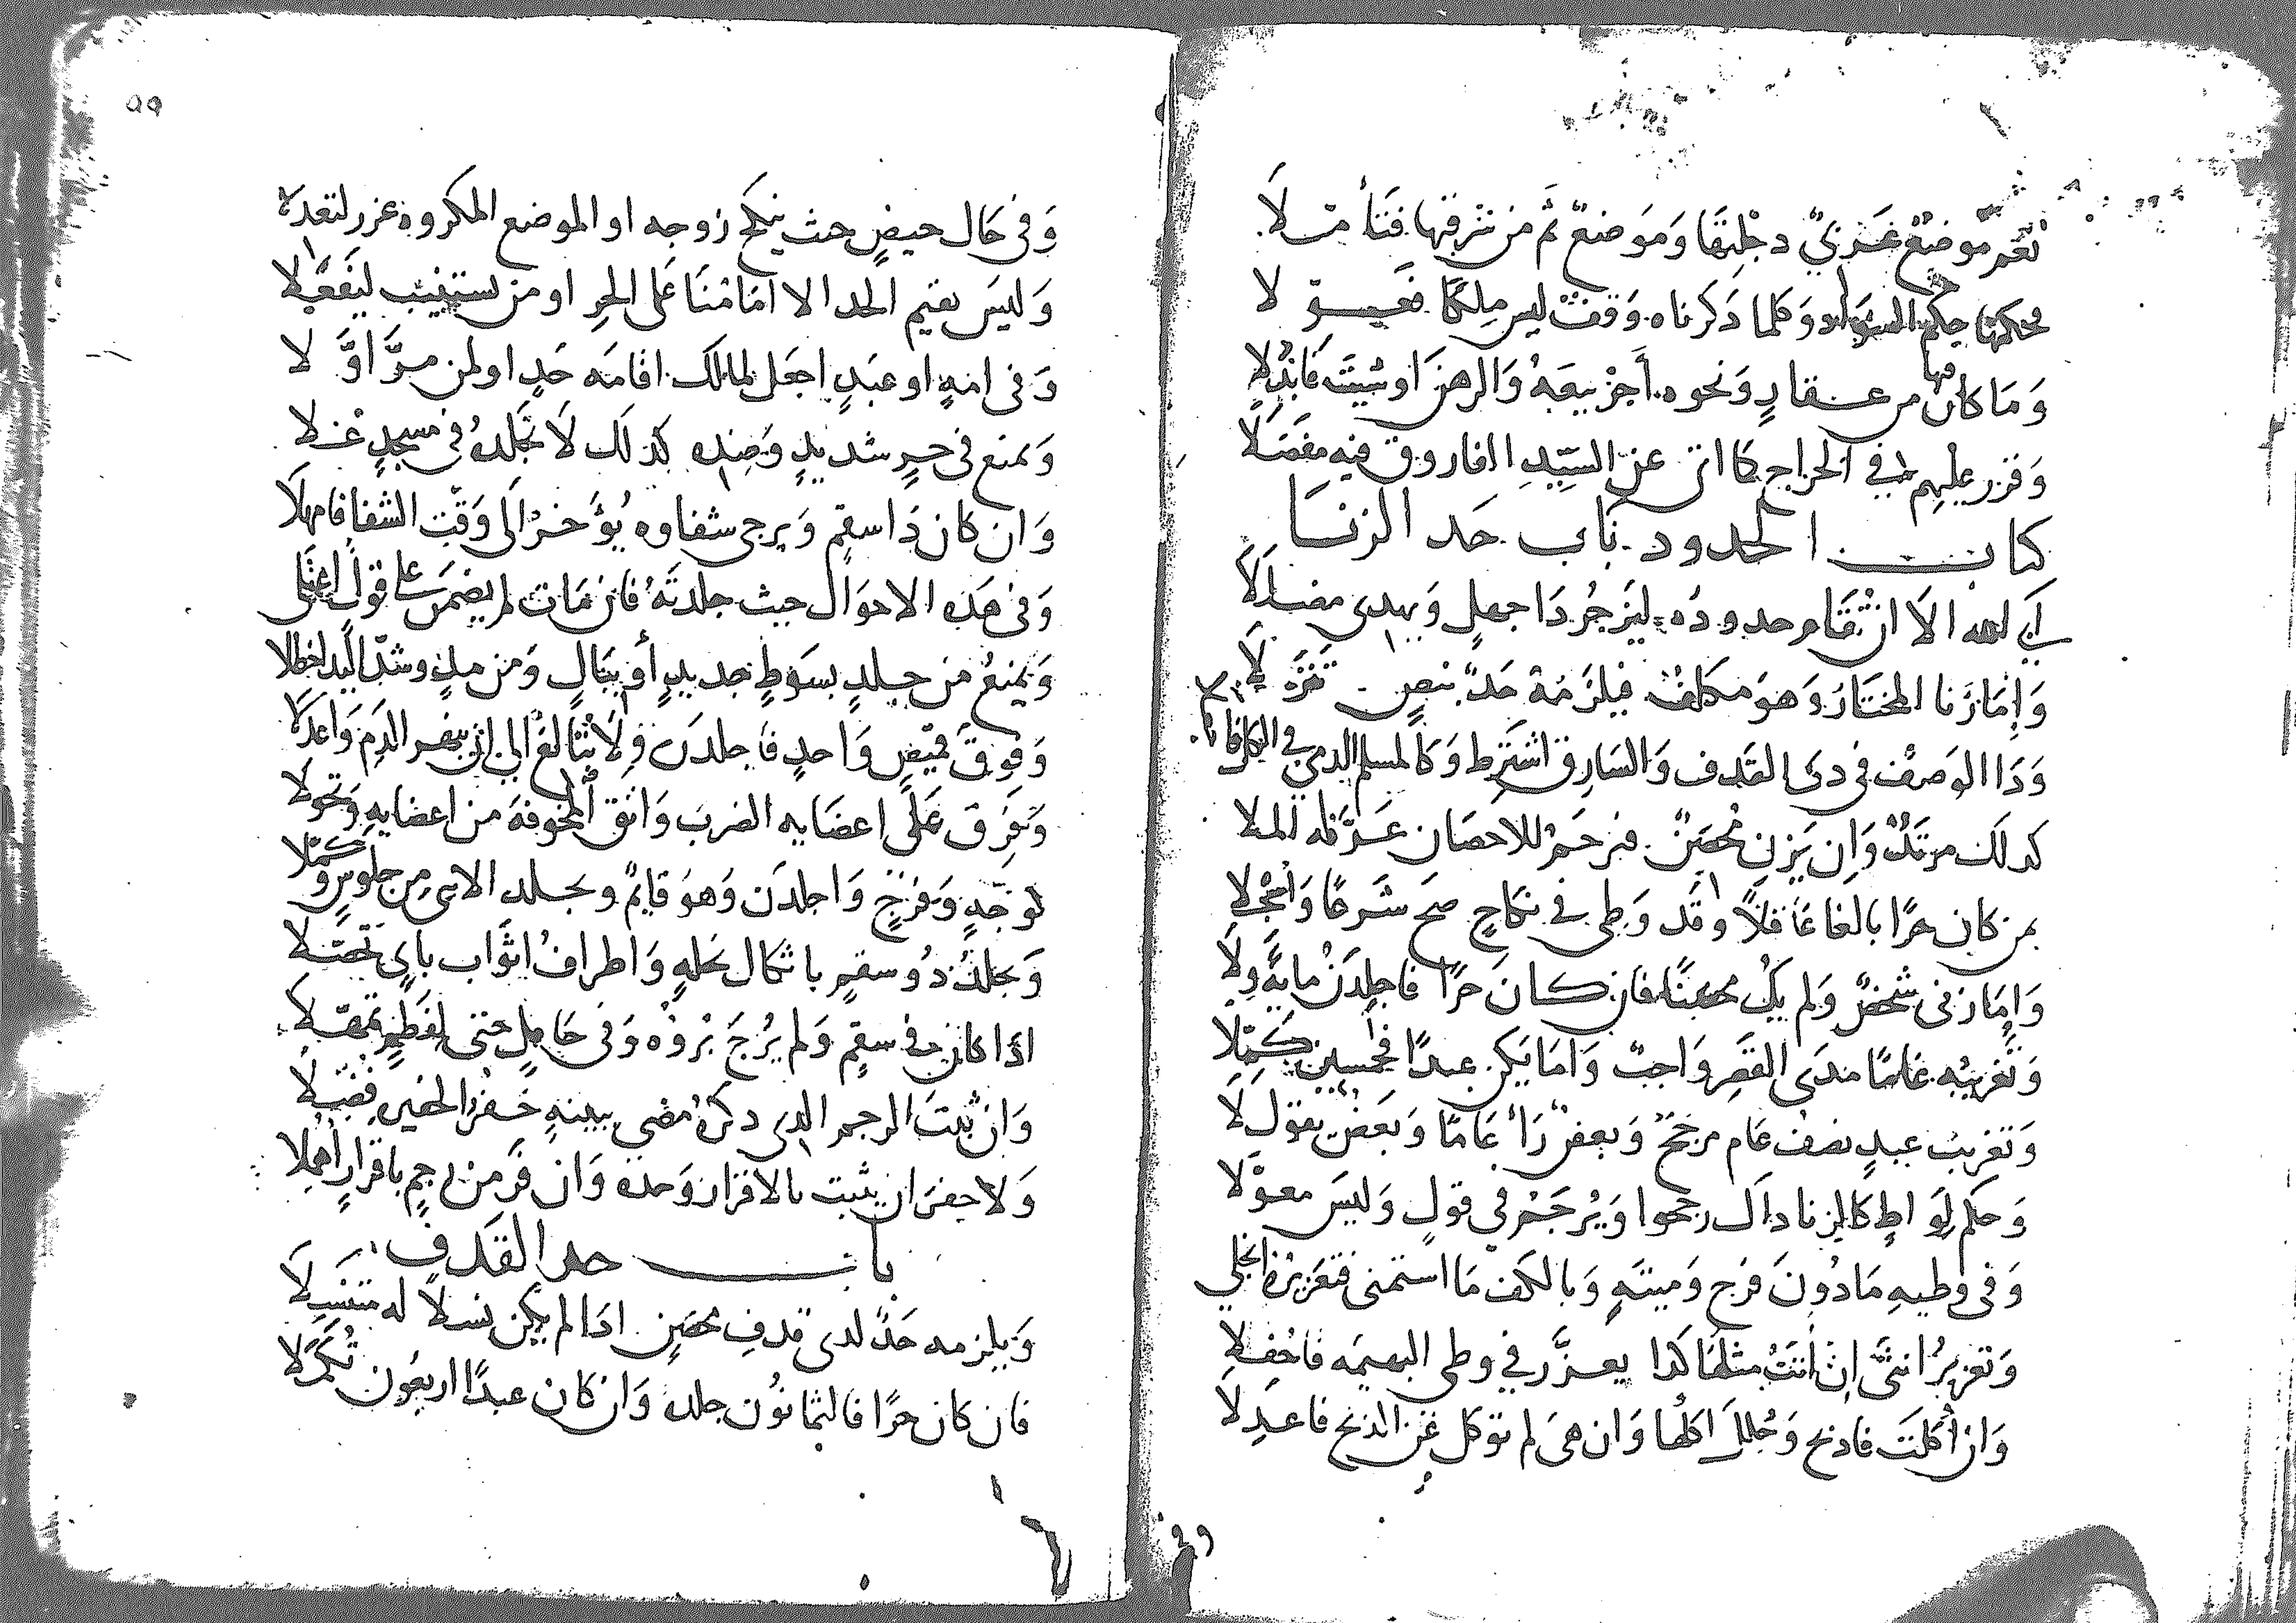 نعم موضع غربي دجلتها وموضع ثم من شرقها فتأمت لا
محكمها حكم السواد وكلما ذكرناه وقف ليس ملكا فعيو لا
وما كان فيها من عقار ونحوه أجز بيعه والرهن او شيته فابدلا
وقرر عليهم في الخراج كما اتى عن السيد الفاروق فيه مفصلا
كتاب الحدود باب حد الزنا
ابى الله الا ان تقام حدوده ليزجر ذا جهل ويهدى مضللا
واما زنا المختار وهو مكلف فيلزمه حد بنص تنزلا
وذا الوصف في ذى القذف والسارق اشترط وكالمسلم الذمي في
كذلك مرتد وان يزن محصن فرجم للاحصان عرفه الملا
بمن كان حرا بالغا عاقلا وقد وطي في نكاح صح شرعا وانجلا
واما زنى شخص ولم يك محصنا فان كان حرا فاجلدن مايه ولا
وتغريبه عاما مدى القصر واجب واما يكن عبدا فخمسين كملا
وتغريب عبد نصف عام مرجح وبعض رأ عاما وبعض يقول لا
وحكم لواط كالزنا ذاك رجحوا ويرجم في قول وليس معولا
وفى وطيه مادون فرج وميتة وبالكف ما استمنى فتعزيره انجلي
وتعزير انثى ان أتت مثلها كذا يعزر في وطى البهيمه فاحفلا
وان أكلت فاذبح وحلل اكلها وان هى لم توكل عن الذبح فاعدلا
٥٩
وفى حال حيض حيث ينكح زوجه او الموضع المكروه عزر لتعدلا
وليس يقيم الحد الا امامنا على الحر او من يستنيب ليفعلا
وفى امة او عبد اجعل لمالك اقامه حد او لمن مر اولا
ويمنع في حر شديد وضده كذلك لا تجلده في مسجد علا
وان كان ذا سقم ويرجى شفاوه يؤخر الى وقت الشفا فامهلا
وفى هذه الاحوال حيث جلدته فان مات لم يضمن على قول اعتلى
ويمنع من جلد بسوط جديد أو ببال ومن مد وشد اليد
وفوق قميص واحد فاجلدن ولا تبالغ الى ان ينهر الدم واعدلا
وتفرق على اعضايه الضرب واتق المخوفة من اعضايه وتحولا
لوجه وفرج واجلدن وهو قايم ويجلد الانثى من جلوس وكملا
ويجلد ذو سقم باثكال نخلة واطراف اثواب باي تحصلا
اذا كان في سقم ولم يرج بروه وفى حامل حتى لفطم تمهلا
وان ثبت الرجم الذى ذكره مضى ببينة حفر الحفير فقبلا
ولا حفر ان يثبت بالاقرار وحده وان فر من رجم باقرار أهملا
باب حد القذف
ويلزمه حد لدى قذف محصن اذا لم يكن نسلا له متنسلا
فان كان حرا فالثمانون جلده وان كان عبدا اربعون تكملا